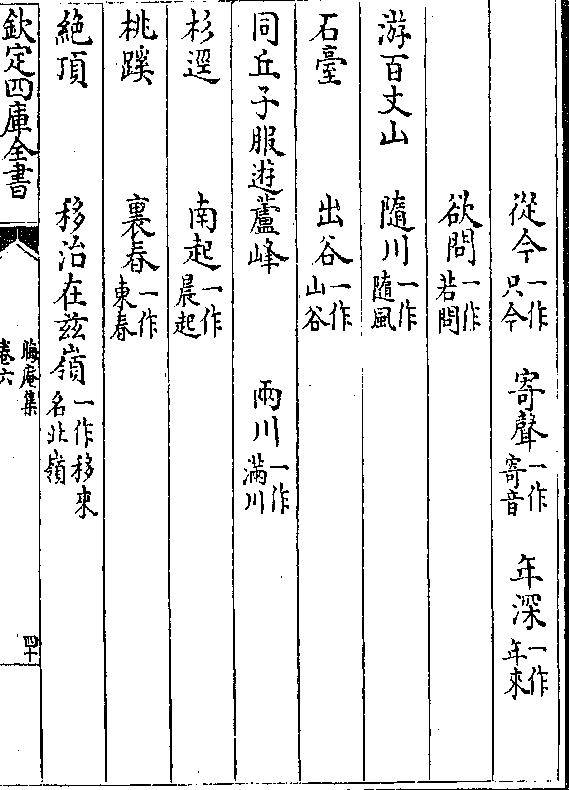 從今一作只今　寄聲一作寄音　年深一作年來
欲問一作若問
游百丈山　隨川一作隨風
石臺　出谷一作山谷
同丘子服遊蘆峰　兩川一作滿川
杉逕　南起一作晨起
桃蹊　裏春一作東春
絶頂　移治在兹嶺一作移來名北嶺
欽定四庫全書　晦庵集卷六　四十